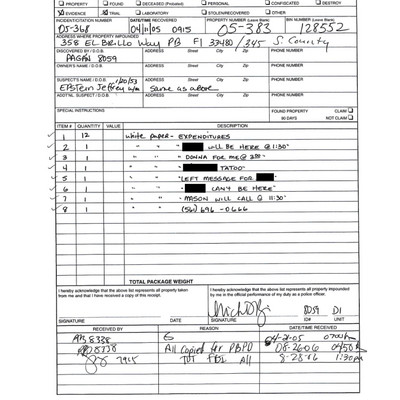 PROPERTY FOUND DECEASED (Probated) PERSONAL CONFISCATED DESTROY
EVIDENCE TRIAL LABORATORY STOLEN/RECOVERED OTHER
INCIDENT/CITATION NUMBER DATE/TIME RECOVERED PROPERTY NUMBER (Leave Blank) BIN NUMBER (Leave Blank)
05-368 04/11/05 0915 05-383 128552
ADDRESS WHERE PROPERTY IMPOUNDED Street City Zip
358 EL Brillo Way PB Fl 33480/345 S. County
DISCOVERED BY / D.O.B. ADDRESS Street City Zip PHONE NUMBER
PAGAN 8059
OWNER'S NAME / D.O.B. ADDRESS Street City Zip PHONE NUMBER
SUSPECT'S NAME / D.O.B. 1/20/53 ADDRESS Street City Zip PHONE NUMBER
EPstein Jeffrey w/m same as above
ADDTNL. SUSPECT / D.O.B. ADDRESS Street City Zip PHONE NUMBER
SPECIAL INSTRUCTIONS FOUND PROPERTY CLAIM
90 DAYS NOT CLAIM
ITEM # QUANTITY VALUE DESCRIPTION
1 12 white paper - EXPENDITURES
2 1 " " " WILL BE HERE @ 11:30"
3 1 " " "DONNA FOR ME @
4 1 " " TATOO"
5 1 " " "LEFT MESSAGE FOR
6 1 " " CAN'T BE HERE"
7 1 " " - MASON WILL CALL @ 11:30"
8 1 " " (561) 696-0666
TOTAL PACKAGE WEIGHT
I hereby acknowledge that the above list represents all property taken from me and that I have received a copy of this receipt.
I hereby acknowledge that the above list represents all property impounded by me in the official performance of my duty as a police officer.
8059 D1
SIGNATURE SIGNATURE ID# UNIT
RECEIVED BY REASON DATE/TIME RECEIVED
8338 4-21-05
8338 All Copied for PBPD 08-26-06 0450
7915 TOT FBI All 8-28-06 1:30pm